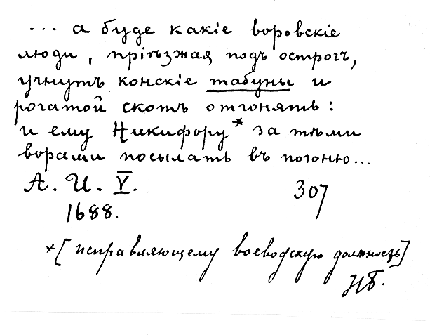 ... а буде какіе воровскіе
люди, пріѣзжая подъ острогъ,
учнутъ конскіе табуны и
рогатой скотъ отгонять:
и ему Никифору* за тѣми
ворами посылать въ погоню...
А. И. V. 307
1688.
*[исправляющему воеводскую должность]